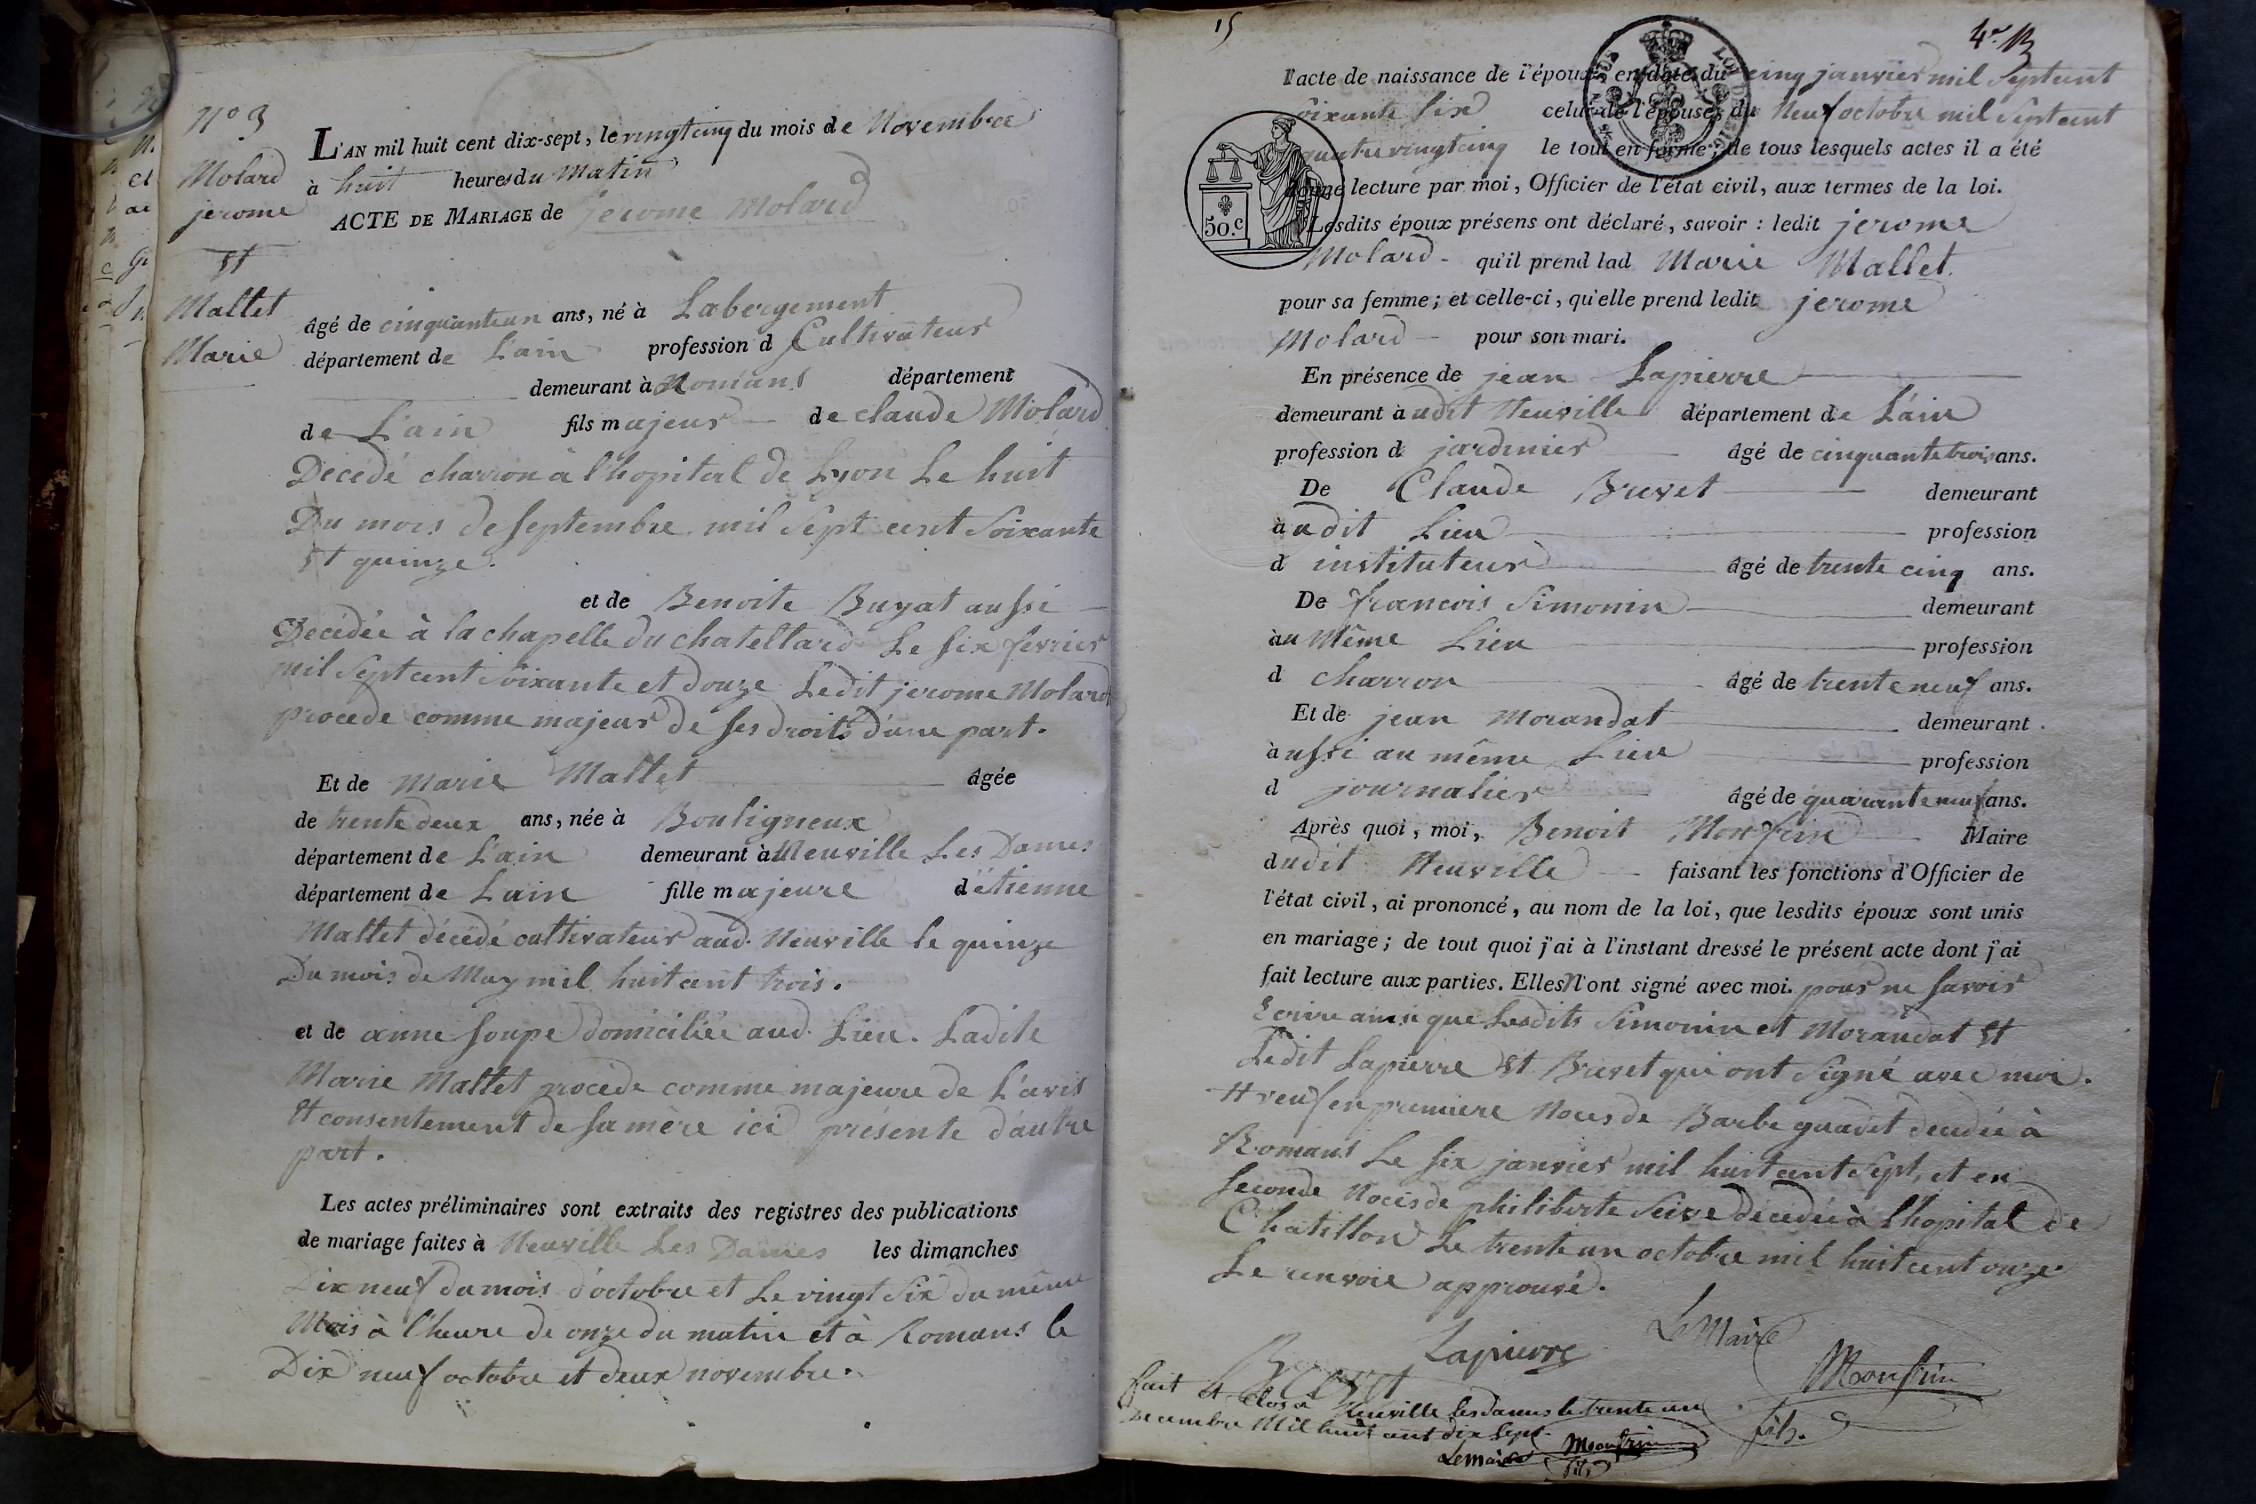 N° 3
Molard
jerome
Et
Mallet
Marie
L'AN mil huit cent dix-sept, le vingt cinq du mois de Novembre
à huit heures du Matin
ACTE DE MARIAGE de jerome Molard
âgé de cinquante un ans, né à Labergement
département de L'ain profession d Cultivateur
demeurant à Romans département
de L'ain fils majeur de claude Molard
Décédé charron à l'hopital de Lyon Le huit
Du mois de septembre mil Sept cent Soixante
Et quinze.
et de Benoite Buyat aussi
Décédée à la chapelle du chatellard Le six fevrier
mil Sept cent Soixante et douze Ledit jerome Molard
procede comme majeur de ses droits d'une part.
Et de Marie Mallet âgée
de trente deux ans, née à Bouligneux
département de L'ain demeurant à Neuville Les Dames
département de L'ain fille majeure d'étienne
Mallet décédé cultivateur aud. Neuville le quinze
Du mois de May mil huit cent trois.
et de anne soupe domiciliée aud. Lieu. Ladite
Marie Mallet procède comme majeure de L'avis
Et consentement de sa mère ici présente d'autre
part.
Les actes préliminaires sont extraits des registres des publications
de mariage faites à Neuville Les Dames les dimanches
Dix neuf du mois d'octobre et Le vingt Six du même
Mois à l'heure de onze du matin et à Romans le
Dix neuf octobre et deux novembre.
15
l'acte de naissance de l'époux, en date du cinq janvier mil Septcent
Soixante Six celui de l'épouse, du Neuf octobre mil Septcent
quatrevingtcinq le tout en forme; de tous lesquels actes il a été
donné lecture par moi, Officier de l'état civil, aux termes de la loi.
50.c
Lesdits époux présens ont déclaré, savoir : ledit jerome
Molard qu'il prend lad Marie Mallet
pour sa femme; et celle-ci, qu'elle prend ledit jerome
Molard pour son mari.
En présence de jean Lapierre
demeurant à udit Neuville département de L'ain
profession d jardinier âgé de cinquante trois ans.
De Claude Brevet demeurant
à udit Lieu profession
d instituteur âgé de trente cinq ans.
De francois Simonin demeurant
au Même Lieu profession
d charron âgé de trente neuf ans.
Et de jean Morandat demeurant
à ussi au même Lieu profession
d journalier âgé de quarante neuf ans.
Après quoi, moi, Benoit Monfrin Maire
dudit Neuville faisant les fonctions d'Officier de
l'état civil, ai prononcé, au nom de la loi, que lesdits époux sont unis
en mariage; de tout quoi j'ai à l'instant dressé le présent acte dont j'ai
fait lecture aux parties. Elles N'ont signé avec moi. pour ne savoir
Ecrire ainsi que Lesdits Simonin et Morandat Et
Ledit Lapierre Et Brevet qui ont Signé avec moi.
# veuf en premiere Noces de Barbe guadet décédée à
Romans Le six janvier mil huit cent Sept, et en
Seconde Noces de philiberte Seive décédée à l'hopital de
Chatillon Le trente un octobre mil huit cent onze.
Le renvoie approuvé.
Le Maire
Lapierre
Brevet
Monfrin
fils.
fait Et Clos à Neuville Les dames le trente un
Decembre Mil huit cent dix Sept.
Le maire Monfrin
fils